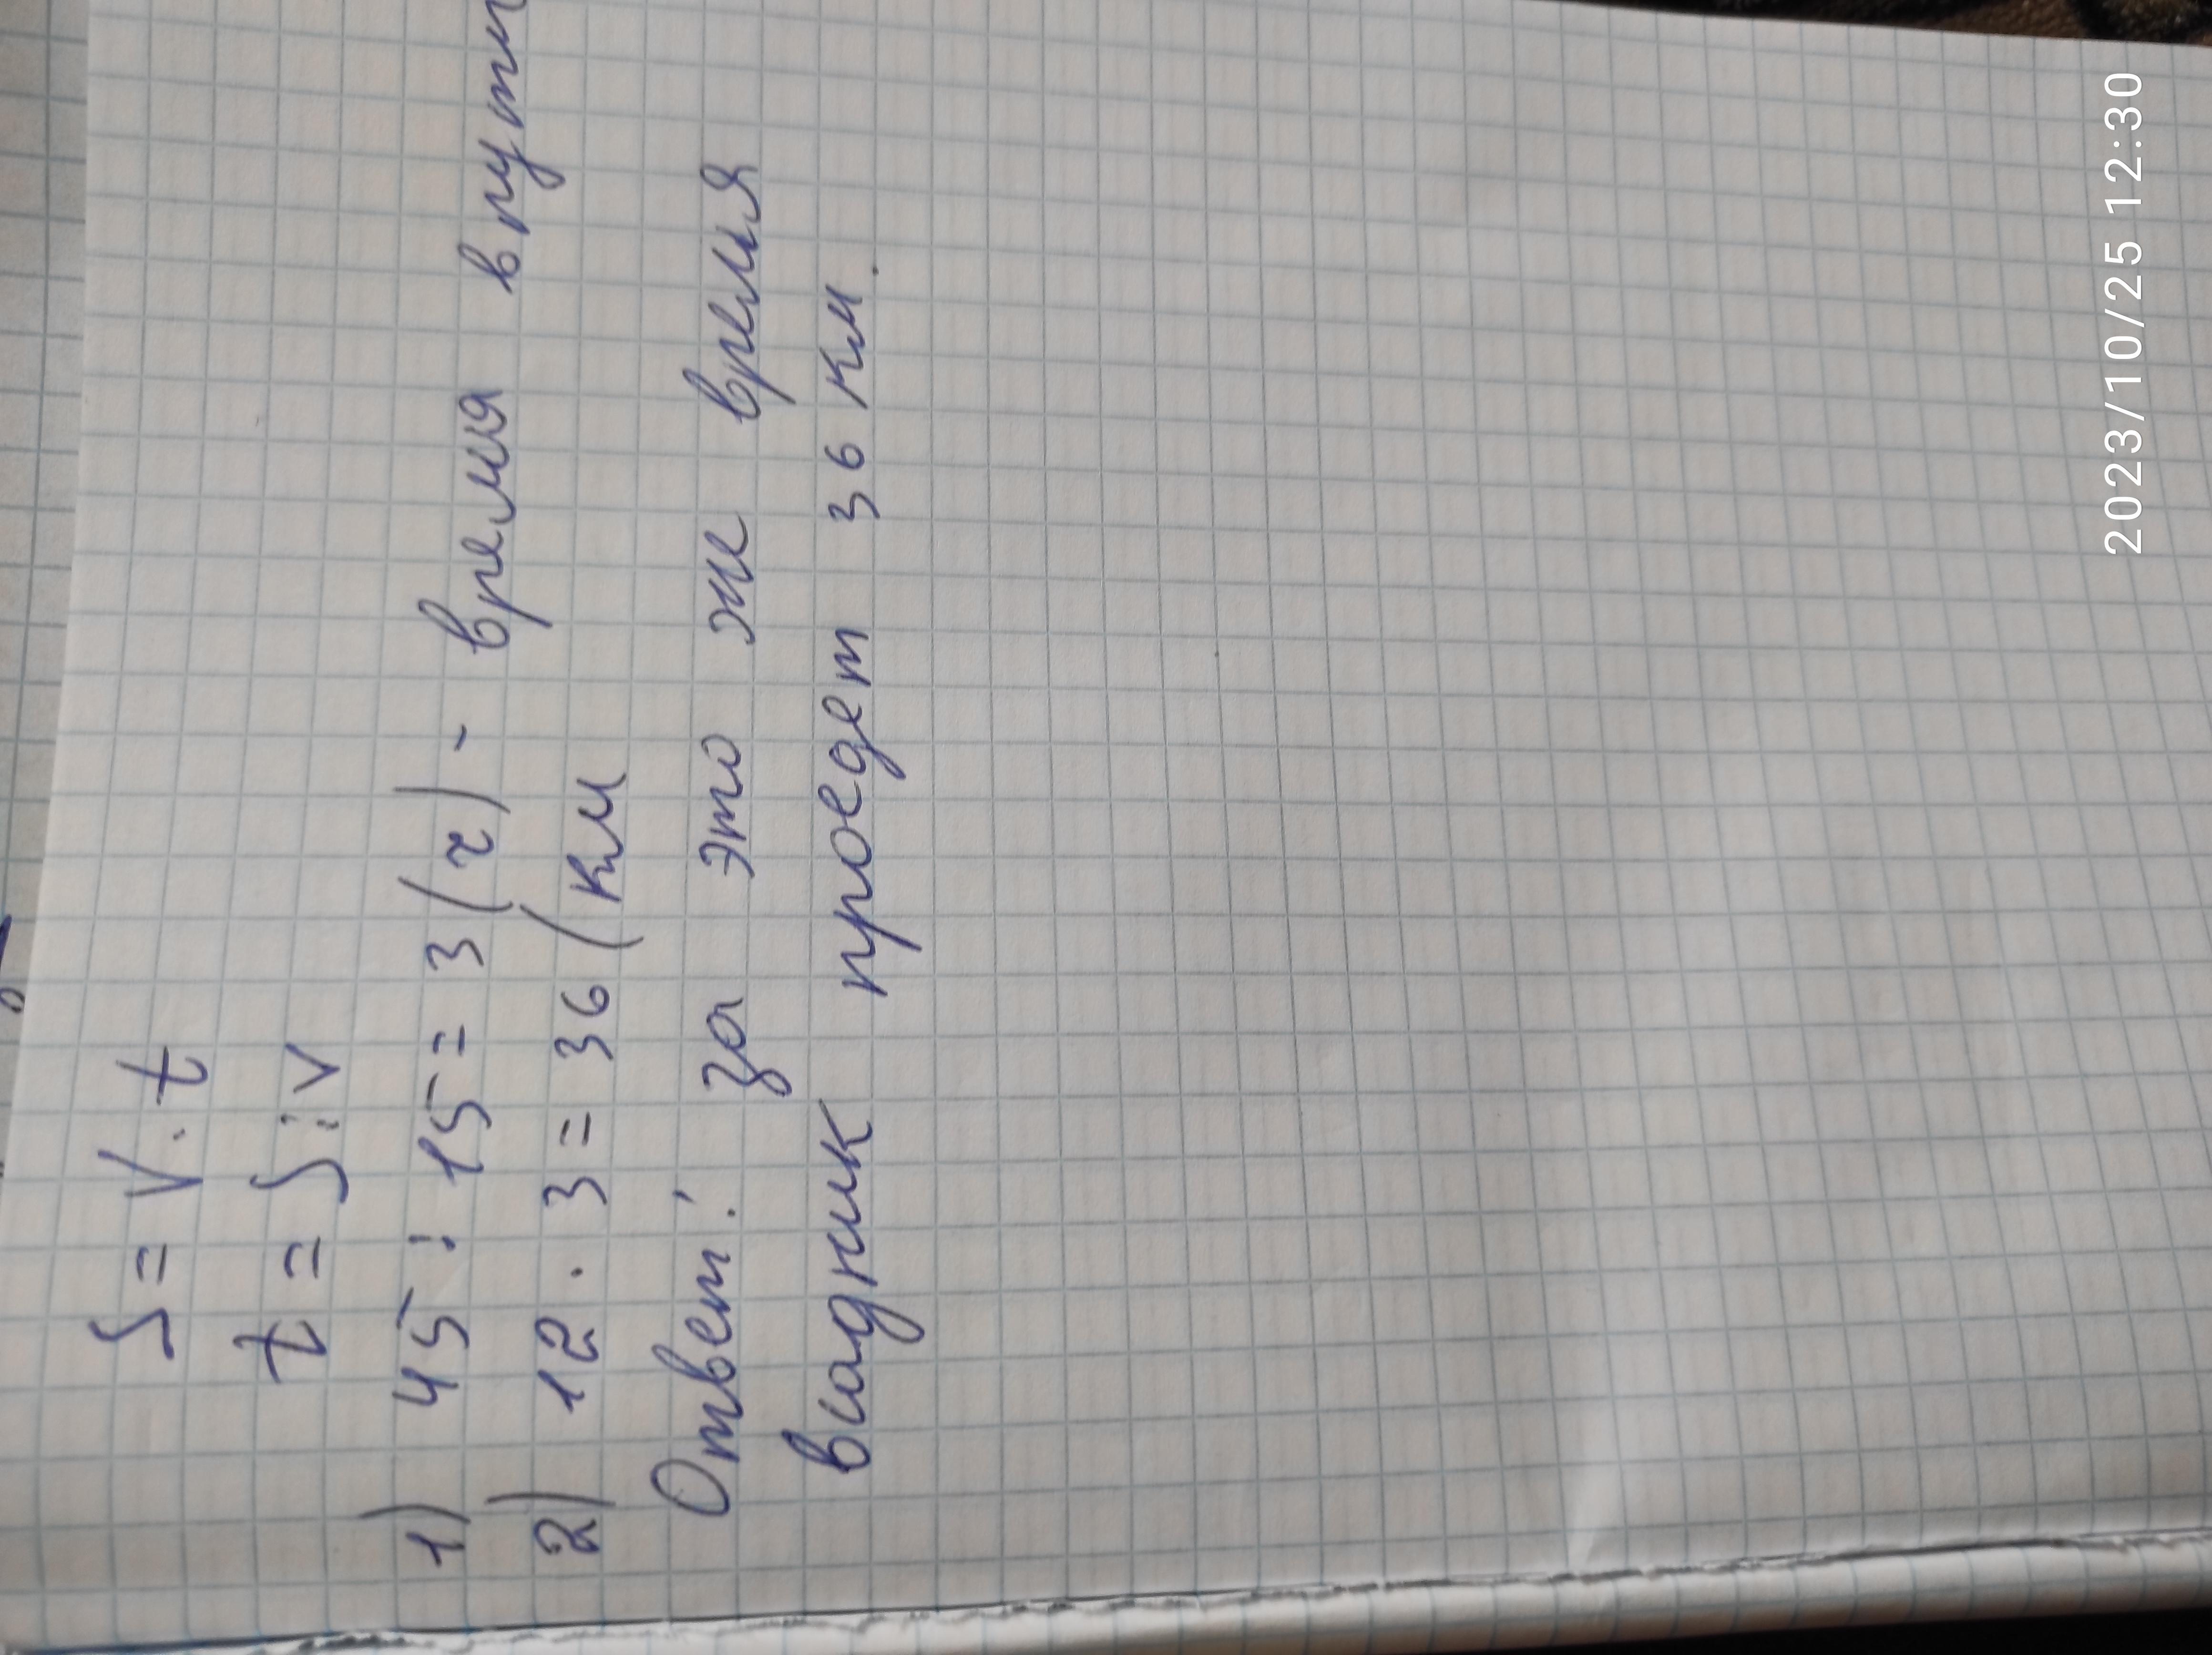 S = V · t
t = S : v
1) 45 : 15 = 3 (ч) - время в пути
2) 12 · 3 = 36 (км
Ответ: за это же время
всадник проедет 36 км.
2023/10/25 12:30